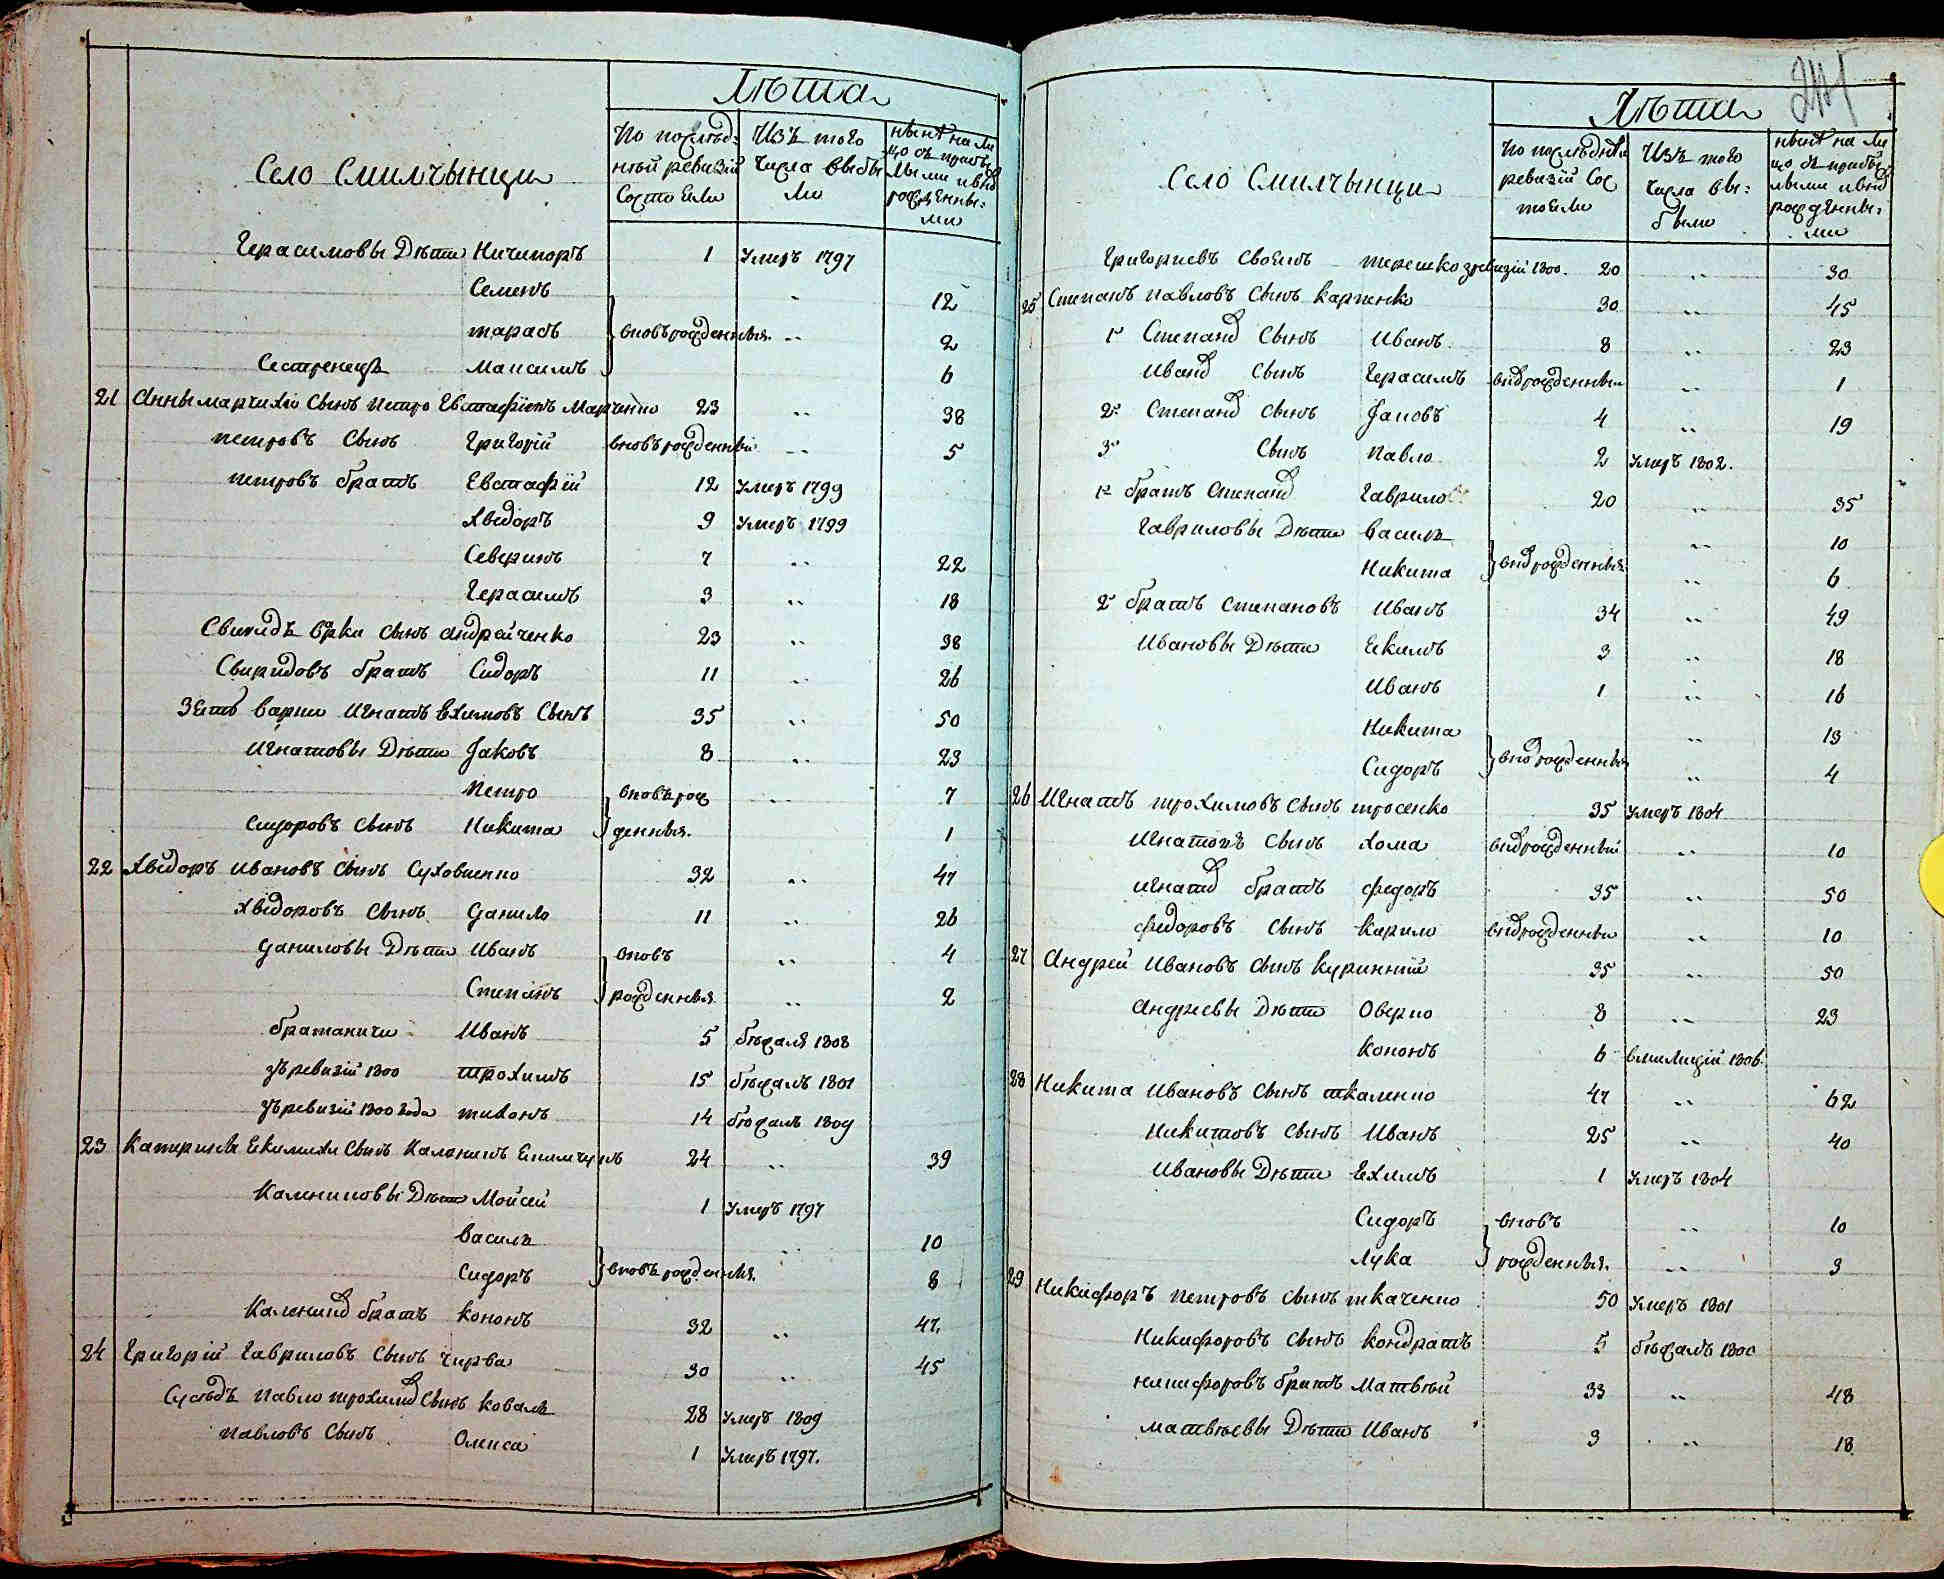 Лѣта
Село Смилчынци
По послѣд-
нѣй ревизїи
Состоели
Изъ того
числа выбы
ли
нынѣ на ли
цо съ прибы
лыми и внов
рожденны:
ми
Герасимовы Дѣти Ничипоръ 1 Умеръ 1797
Семенъ .. 12
тарасъ вновърожденныя .. 2
Сестренецъ Максимъ 6
21 Анны марчихи Сынъ петро Евстафїевъ Марченко 23 .. 38
петровъ Сынъ Григорїй вновърожденный .. 5
петровъ братъ Евстафїй 12 Умеръ 1799
Хведоръ 9 Умеръ 1799
Северинъ 7 .. 22
Герасимъ 3 .. 18
Свиридъ вѣрки Сынъ андрейченко 23 .. 38
Свиридовъ братъ Сидоръ 11 .. 26
Зеть варки Игнатъ Ехимовъ Сынъ 35 .. 50
Игнатовы Дѣти Јаковъ 8 .. 23
Петро вновърож .. 7
Сидоровъ Сынъ Никита денныя. 1
22 Хведоръ ивановъ Сынъ Суховиенко 32 .. 47
Хведоровъ Сынъ Данило 11 .. 26
Даниловы Дѣти Иванъ вновъ .. 4
Степанъ рожденныя .. 2
братаничи Иванъ 5 бѣжалъ 1808
зъревизїи 1800 трохимъ 15 бѣжалъ 1801
зъревизїи 1800 года тихонъ 14 бѣжалъ 1809
23 Катерины Екимихи Сынъ Каленикъ Екимчукъ 24 .. 39
Калениковы Дѣти Мойсей 1 Умеръ 1797
василь .. 10
Сидоръ вновърожденныя. 8
Калеников братъ кононъ 32 .. 47.
24 Григорїй Гавриловъ Сынъ чирва 30 .. 45
Сусѣдъ павло трохимов Сынъ коваль 28 Умеръ 1809
павловъ Сынъ Олекса 1 Умеръ 1797.
Лѣта
Село Смилчынци
По послѣдней
ревизїи Сос
тоели
Изъ того
числа вы:
были
нынѣ на ли
цо съ прибы
лыми и внов
рожденны:
ми
Григориевъ Своякъ терешко зревизїи 1800. 20 .. 30
25 Степанъ павловъ Сынъ карпенко 30 .. 45
1й Степанов Сынъ Иванъ 8 .. 23
Иванов Сынъ Герасимъ внврожденный .. 1
2й Степанов Сынъ Јаковъ 4 .. 19
3й Сынъ павло 2 Умеръ 1802.
1й братъ Степанов Гаврило 20 .. 35
Гавриловы Дѣти василь .. 10
Никита внврожденныя .. 6
2й братъ Степановъ Иванъ 34 .. 49
Ивановы Дѣти Екимъ 3 .. 18
Иванъ 1 .. 16
Никита .. 13
Сидоръ внврожденныя .. 4
26 Игнатъ трохимовъ Сынъ тросенко 35 Умеръ 1804
Игнатовъ Сынъ Хома внврожденный .. 10
игнатов братъ федоръ 35 .. 50
федоровъ Сынъ кирило внврожденны .. 10
27 Андрей Ивановъ Сынъ куринний 35 .. 50
Андреевы Дѣти Оверко 8 .. 23
кононъ 6 вмилицїи 1806
28 Никита Ивановъ Сынъ ткаленко 47 .. 62
Никитовъ Сынъ Иванъ 25 .. 40
Ивановы Дѣти Ехимъ 1 Умеръ 1804
Сидоръ вновъ .. 10
Лука рожденныя. .. 3
29 Никифоръ петровъ Сынъ ткаченко 50 Умеръ 1801
Никифоровъ Сынъ кондратъ 5 бѣжалъ 1800
никифоровъ братъ Матвѣй 33 .. 48
матвѣевы Дѣти Иванъ 3 .. 18